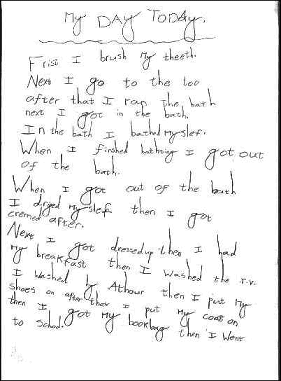 My DAY TODAY.
Frist I brush my theeth.
Next I go to the too
after that I ran the bath
next I got in the bath.
In the bath I bathd my slef.
When I finshed bathing I got out
of the bath.
When I got out of the bath
I dryed my slef then I got
cremed after.
Next I got dressed up then I had
my breakfast then I washed the T.V.
I washed by Athour then I put my
shoes on after then I put my coat on
then I got my bookbag then I went
to school.